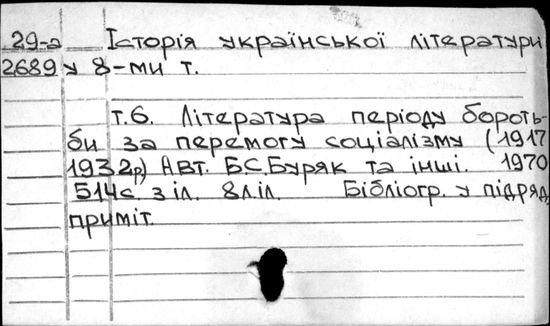 29-а Історія української літератури
2689 у 8-ми т.
т.6. Література періоду бороть-
би за перемогу соціалізму (1917
1932р) Авт. Б.С.Буряк та інші. 1970
514с. з іл. 8л.іл. Бібліогр. у підряд.
приміт.